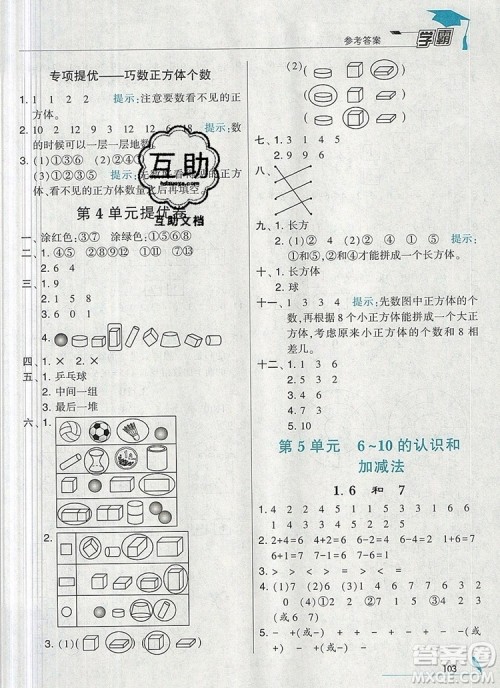 参考答案 学霸
专项提优——巧数正方体个数
1. 1 1 2 2 提示:注意要数看不见的正
方体。
2. 10 12 9 9 12 18 提示:数
的时候可以一层一层地数。
3. (1)①③⑥ (2)②④⑤ 提示:
看不见的正方体数量后再填空。
第4单元提优卷
一、涂红色:③④ 涂绿色:①⑤⑦⑬
二、1. ④⑤
2. 6 4
三、1. 9
2. 0 1 5 8
3. 6 0 1 8
4.
四、1. × 2. ×
五、1. 乒乓球
2. 中间一组
3. 最后一堆
六、1.
2.
3. (1)
(2)
七、1. 3 1 4 5
2. 9 9 6
八、
九、1. 长方
2. (1)② ④ (2)①⑤ ④⑤ 提示:
①④和②⑤才能拼成一个长方体。
十、1. 长方体
2. 球
十一、1 1 4 提示:先数图中正方体的个
数,再用8个正方体能拼成一个大正
方体,考虑原来小正方体的个数和8相
差几。
十二、1. 1 3 6
2. 1 3 4 7
3. 5 10
第5单元 6~10的认识和
加减法
1. 6 和 7
1. 4 2 2 4 5 1 5 2 2 3 1 6
2. 2+4=6 4+2=6 6-2=4 6-4=2
6+1=7 1+6=7 7-1=6 7-6=1
3. > < = > > < > =
4. (1)7 (2)6 (3)0 7 1 6 2
0 (4)6 0 1 7 0 7
5. - +(或-) +(或-) - + -
- +(或-) + - -
103
互助
互助文档
答案圈
MXQE.COM